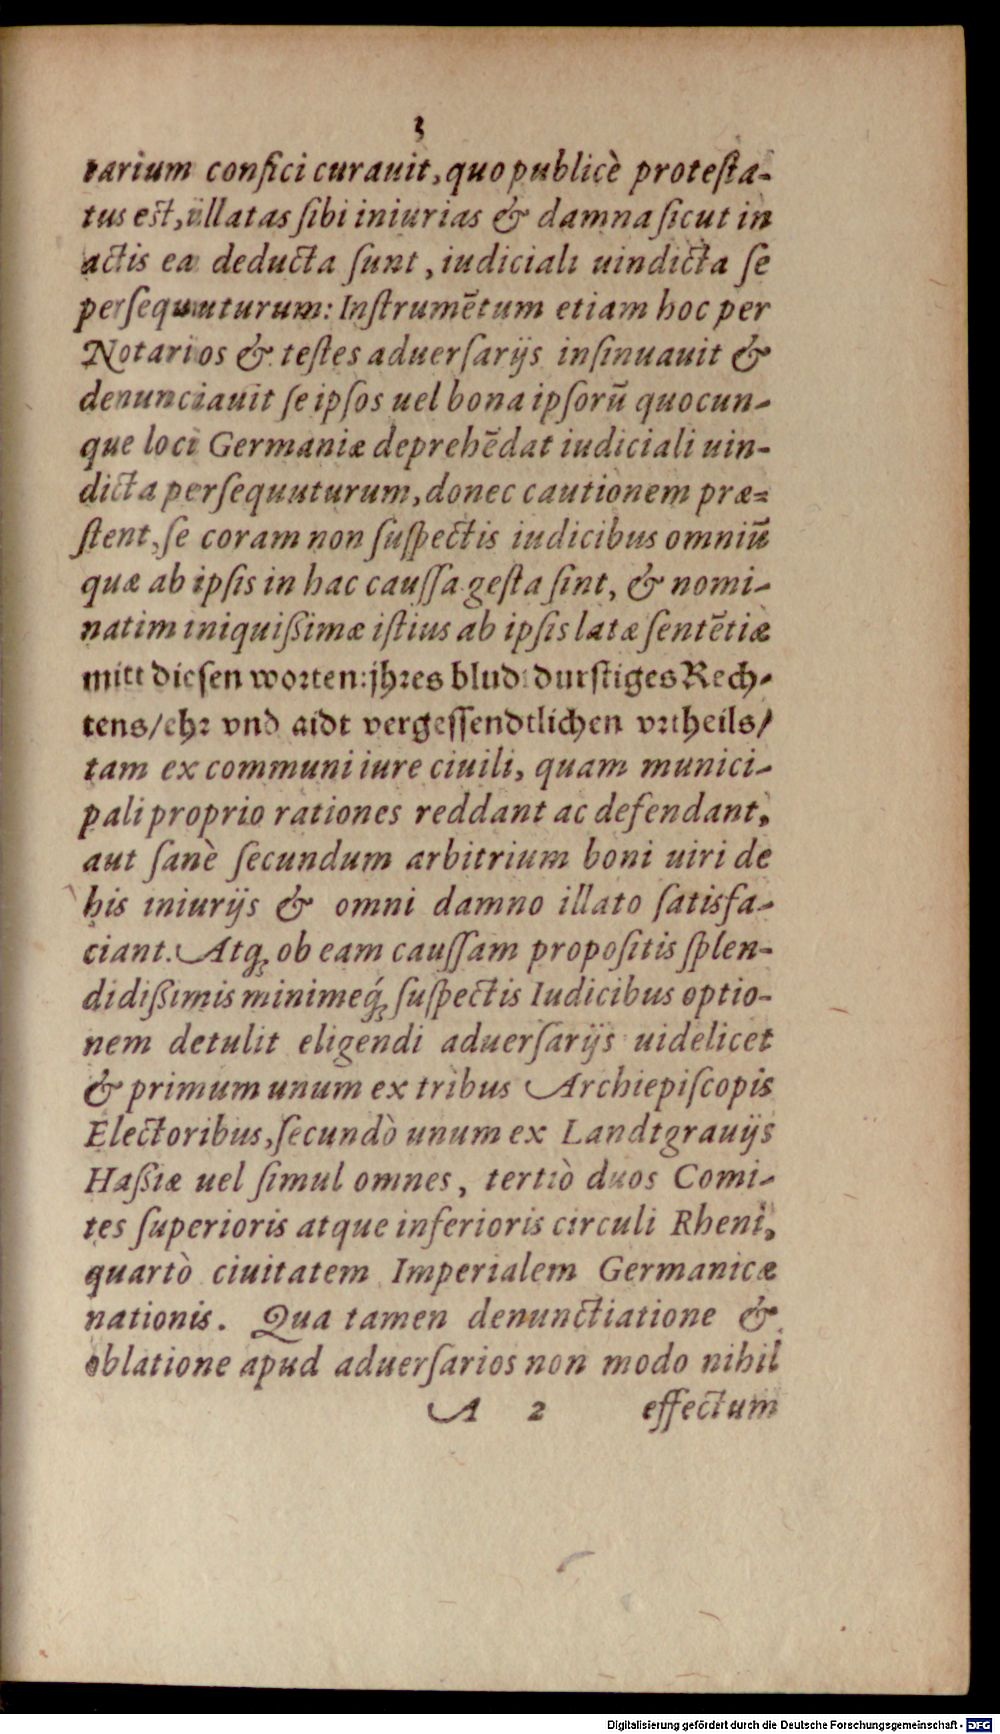 3
tarium confici curauit, quo publicè protesta-
tus est, illatas sibi iniurias & damna sicut in
actis ea deducta sunt, iudiciali uindicta se
persequuturum: Instrumētum etiam hoc per
Notarios & testes aduersarijs insinuauit &
denunciauit se ipsos uel bona ipsorū quocun-
que loci Germaniæ deprehēdat iudiciali uin-
dicta persequuturum, donec cautionem præ-
stent, se coram non suspectis iudicibus omniū
quæ ab ipsis in hac caussa gesta sint, & nomi-
natim iniquißimæ istius ab ipsis latæ sentētiæ
mitt diesen worten: jhres blud durstiges Rech-
tens/ ehr vnd aidt vergessendtlichen vrtheils/
tam ex communi iure ciuili, quam munici-
pali proprio rationes reddant ac defendant,
aut sanè secundum arbitrium boni uiri de
his iniurijs & omni damno illato satisfa-
ciant. Atq; ob eam caussam propositis splen-
didißimis minimeq́; suspectis Iudicibus optio-
nem detulit eligendi aduersarijs uidelicet
& primum unum ex tribus Archiepiscopis
Electoribus, secundò unum ex Landtgrauijs
Haßiæ uel simul omnes, tertiò duos Comi-
tes superioris atque inferioris circuli Rheni,
quartò ciuitatem Imperialem Germanicæ
nationis. Qua tamen denunctiatione &
oblatione apud aduersarios non modo nihil
A 2 effectum
Digitalisierung gefördert durch die Deutsche Forschungsgemeinschaft - DFG